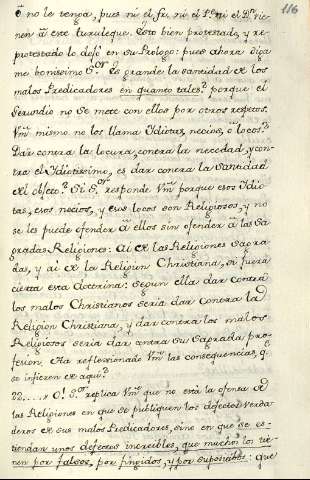 116
ò no le tenga, pues ni el fr. ni el Pe. ni el Dn. vie-
nen à este turuleque. Esto bien protestado, y re-
protestado le dejé en su Prologo: pues ahora diga
me bonissimo Sor. Es grande la santidad de los
malos Predicadores en quanto tales? porque el
Gerundio no se mete con ellos por otros respetos.
Vm. mismo no los llama Idiotas, necios, ò locos?
Dar contra la locura, contra la necedad, y con-
tra el Idiotissimo, es dar contra la santidad
del objeto? Si Sor. responde Vm. porque esos Idio
tas, esos necios, y esos locos son Religiosos, y no
se les puede ofender à ellos sin ofender à las sa
gradas Religiones: Ai de las Religiones sagra
das, y ai de la Religion Christiana, si fuera
cierta esta doctrina: segun ella dar contra
los malos Christianos seria dar contra la
Religion Christiana, y dar contra los malos
Religiosos seria dar contra su Sagrada pro-
fesion. Ha reflexionado Vm. las consequencias, q.
se infieren de aqui?
22.... O! Sor. replica Vm. que no está la ofensa de
las Religiones en que se publiquen los defectos verda
deros de sus malos Predicadores, sino en que se es-
tiendan unos defectos increibles, que muchos los tie-
nen por falsos, por fingidos, y por suposibles: que